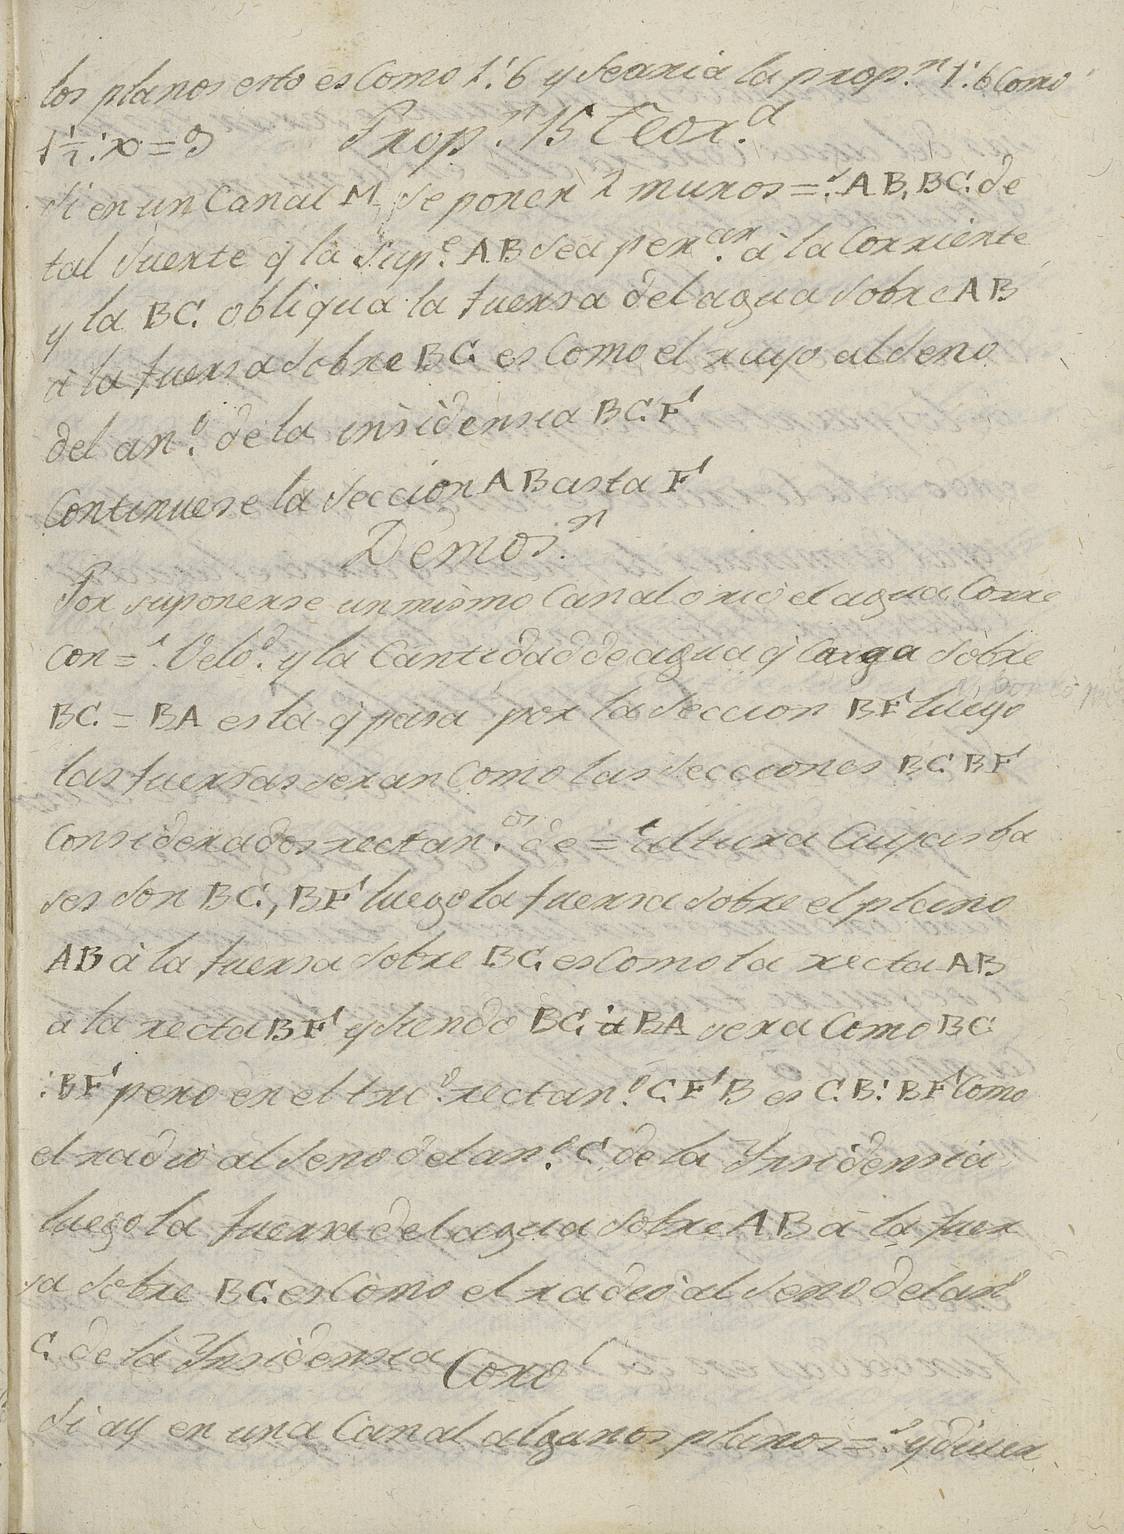 los planos esto es Como 1:6 y searia la prop.n 1:6 Como
1½:x=9 Prop.n 15 Teor.a
Si en un Canal M se ponen 2 muros =.s AB, BC de
tal suerte q la sup.e AB sea per.ar à la Corriente
y la BC obliqua la fuersa del agua sobre AB
a la fuersa sobre BC es Como el rayo al seno
del an.o de la insidensia BCF
Continuese la Seccion AB asta F
Demos.n
Por suponerse un mismo Canal o rio el agua Corre
Con =.s Velo.d y la Cantidad de agua q Carga sobre
BC = BA es la q pasa por la Seccion BF luego
las fuersas seran Como las Secciones BC BF
Considerados rectan.os de = altura Cuyas ba
ses son BC, BF luego la fuersa sobre el plano
AB à la fuersa sobre BC es Como la recta AB
a la recta BF y siendo BC à BA sera Como BC
:BF pero en el tri.o rectan.o CFB es CB:BF Como
el radio al Seno del an.o C de la Ynsidensia
luego la fuersa del agua sobre AB à la fuer
sa sobre BC es Como el radio al Seno del an.o
C de la Ynsidensia Coro.l
Si ay en una Canal algunos planos =.s y diver